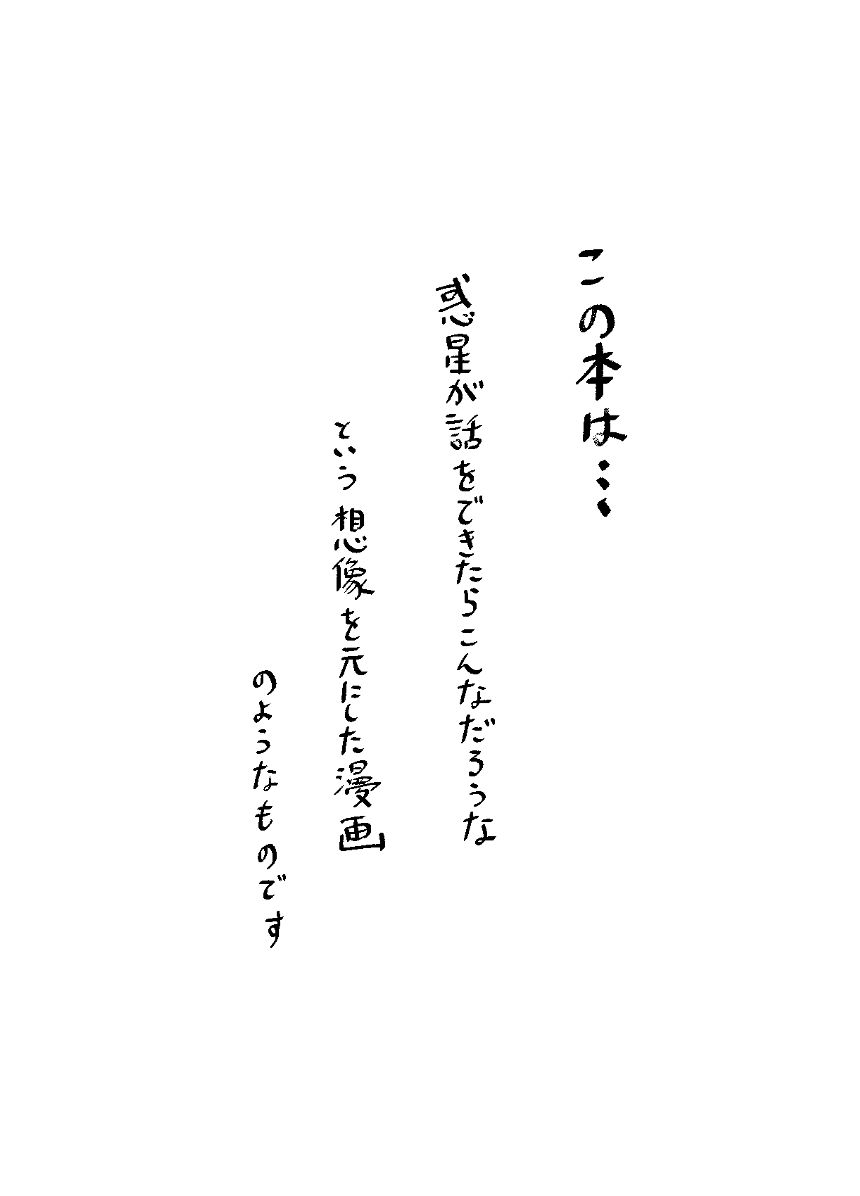 この本は…
惑星が話をできたらこんなだろうな
という想像を元にした漫画
のようなものです